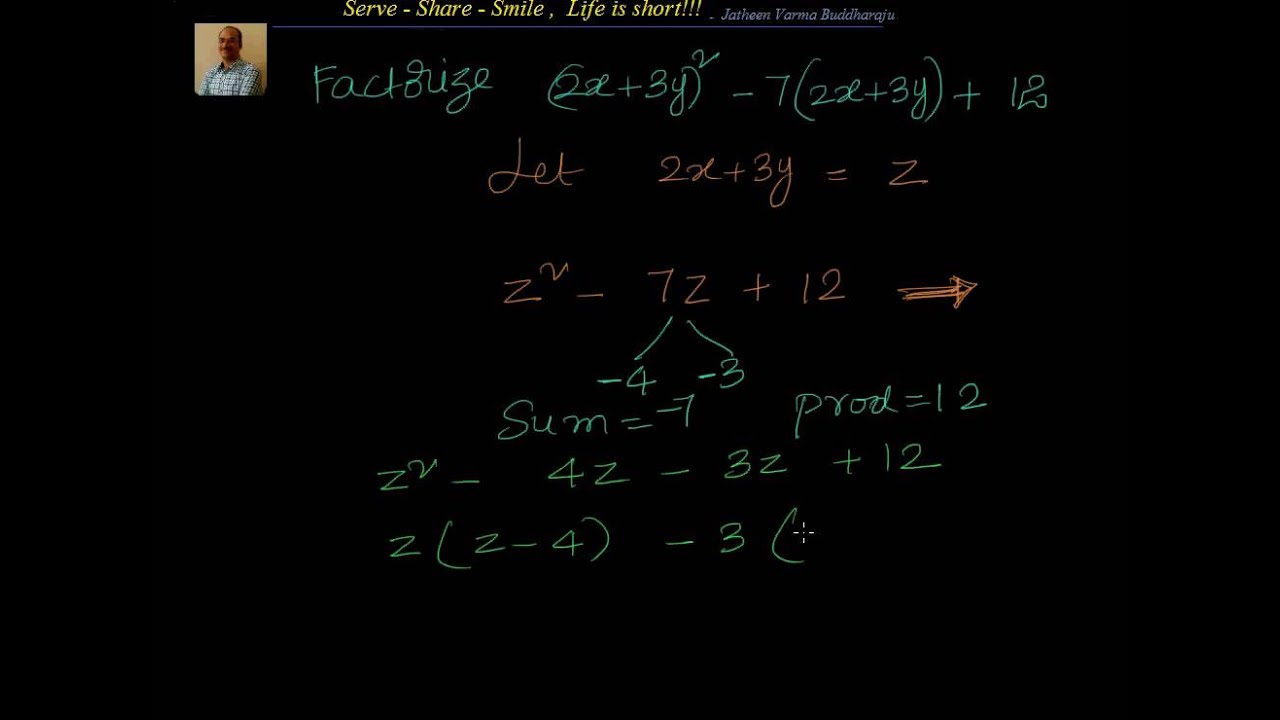 Serve - Share - Smile , Life is short!!! - Jatheen Varma Buddharaju
Factorize (2x+3y)² - 7(2x+3y) + 12
Let 2x+3y = z
z² - 7z + 12 ⇒
-4 -3
Sum = -7 prod = 12
z² - 4z - 3z + 12
z(z-4) - 3(